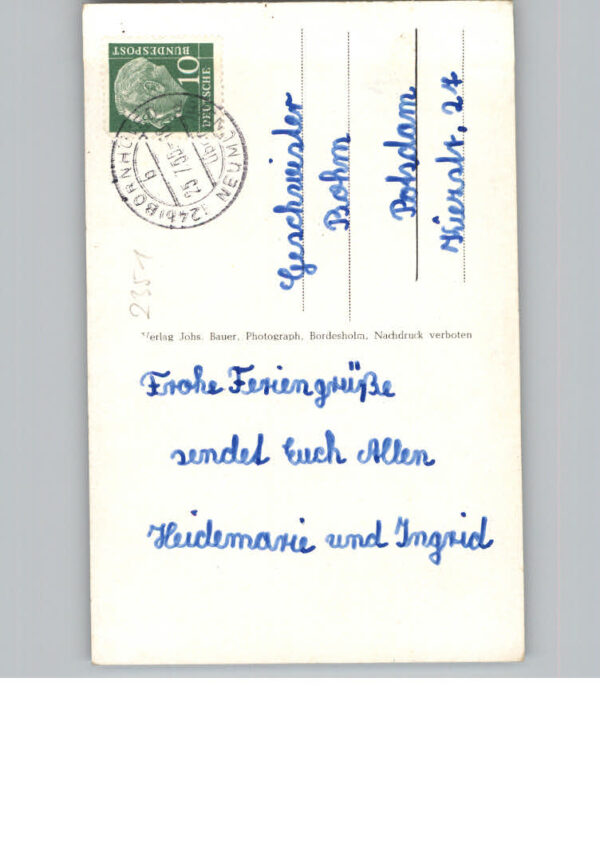 10
DEUTSCHE
BUNDESPOST
(24b) BORNH
NEUM
b
25.7.
Geschwister
Potsdam
2351
Verlag Johs. Bauer, Photograph, Bordesholm, Nachdruck verboten
Frohe Feriengrüße
sendet Euch Allen
Heidemarie und Ingrid